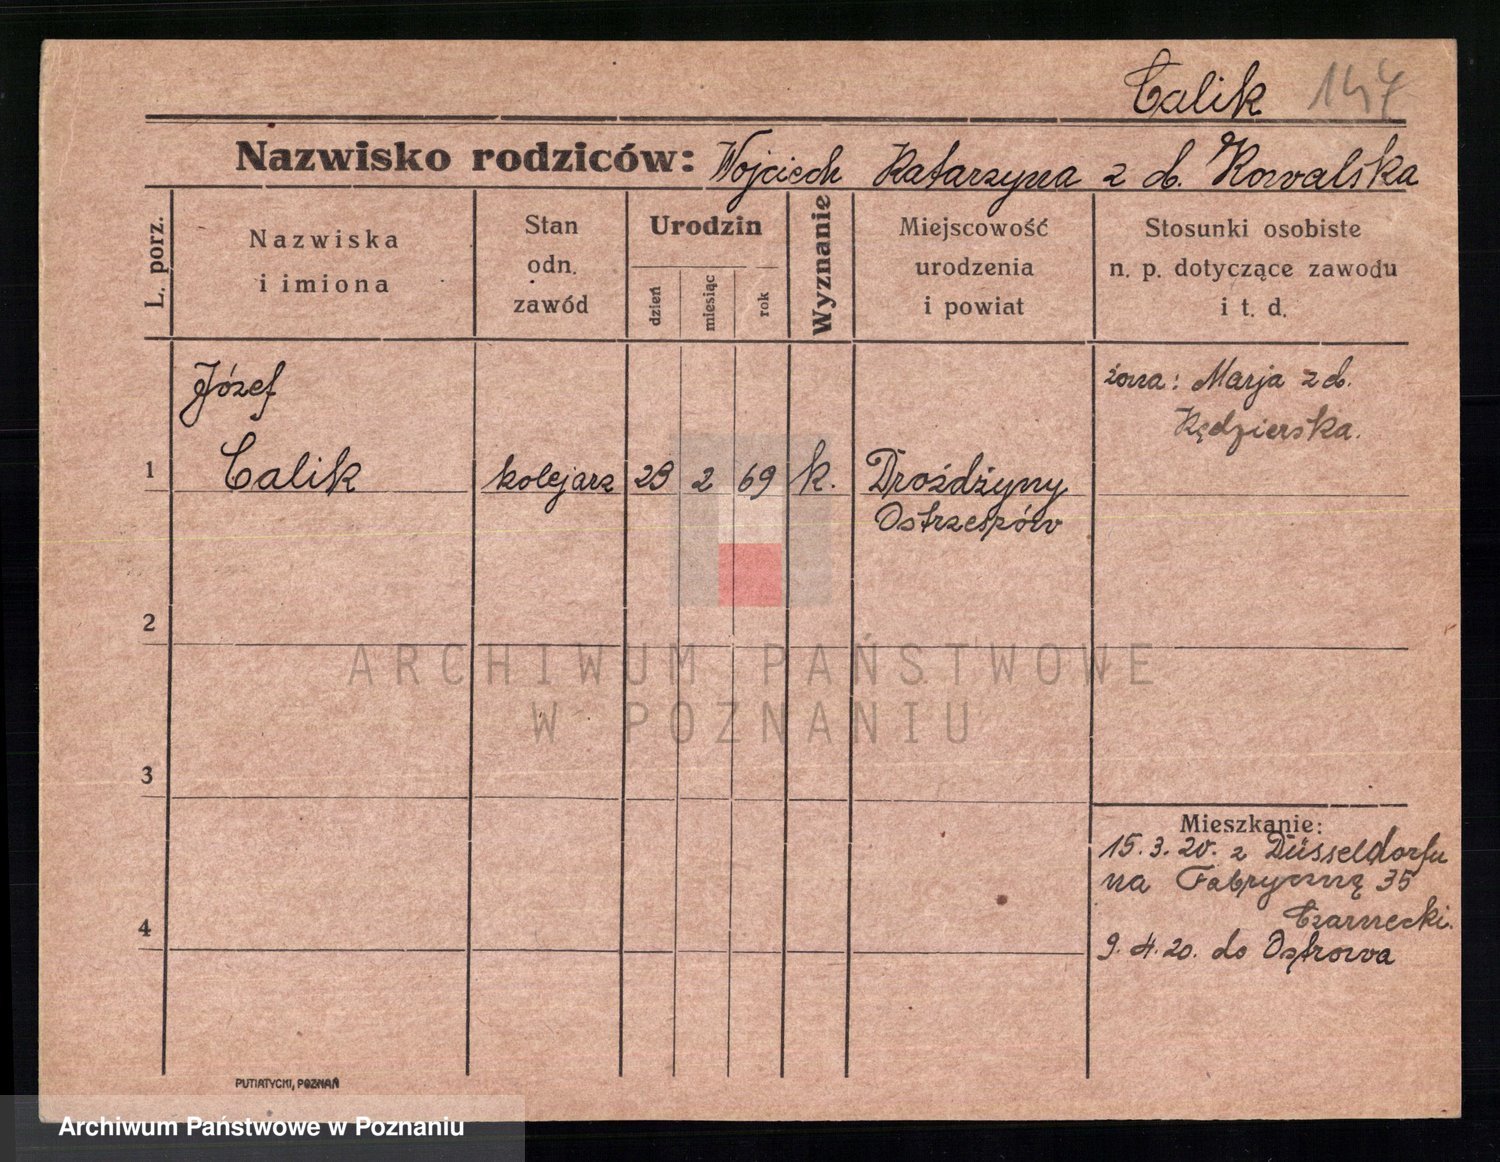 Calik 147
Nazwisko rodziców: Wojciech Katarzyna z d. Kowalska
L. porz.
Nazwiska
i imiona
Stan
odn.
zawód
Urodzin
dzień
miesiąc
rok
Wyznanie
Miejscowość
urodzenia
i powiat
Stosunki osobiste
n. p. dotyczące zawodu
i t. d.
Józef
żona: Marja z d.
Kędzierska.
1 Calik kolejarz 23 2 69 k. Drożdżyny
Ostrzeszów
2
ARCHIWUM PAŃSTWOWE
W POZNANIU
3
Mieszkanie:
15.3.20. z Düsseldorfu
na Fabryczną 35
Czarnecki.
4
9.4.20. do Ostrowa
PUTIATYCKI, POZNAŃ
Archiwum Państwowe w Poznaniu